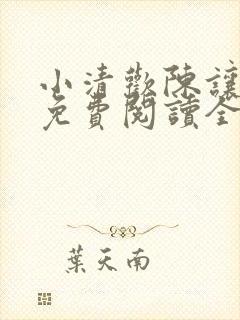 小清歡陳讓
免費閱讀全
葉天南